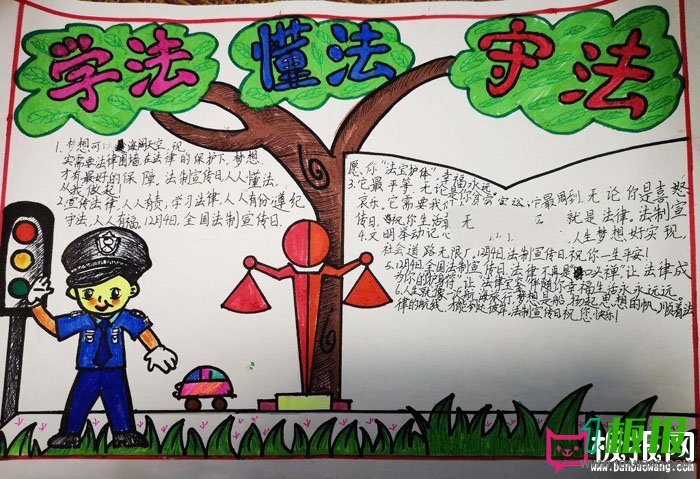 学法 懂法 守法
1.梦想可以 海阔天空，现
实需要法律围墙在法律的保护下，梦想
才有最好的保障。法制宣传日人人懂法，
从我做起！
2.宣传法律人人有责，学习法律，人人有份遵纪
守法，人人有福，12月4日，全国法制宣传日。
愿，你"法宝护体"幸福永远。
3.它最平等，无论 无论你是喜怒
哀乐，它需要我们 就是法律，法制宣
传日，祝你生活 无
4.文明举动记心 人生梦想好实现，
社会道路无限广，12月4日法制宣传日祝你一生平安！
5.12月4日，全国法制宣传日，法律不再是"口头禅"让法律成
为你的"护身符"，让"法宝"宝伴随你，幸福生活永永远远。
6.人生 梦想是船，扬起思想的帆，顺着法
律的航线， 法制宣传日祝您快乐！
板报
板报网
www.banbaowang.com